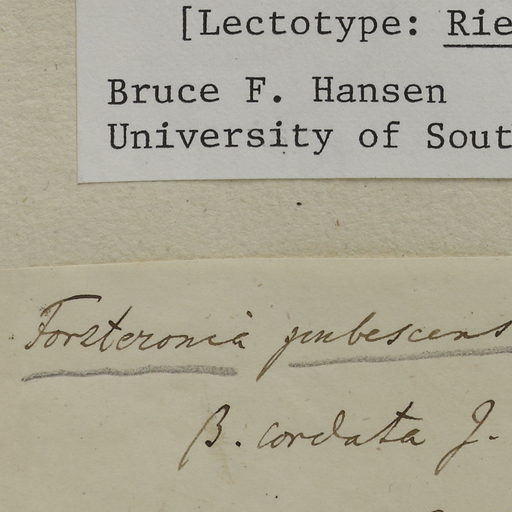 [Lectotype: Rie
Bruce F. Hansen
University of Sout
Forsteronia pubescens
β. cordata J.